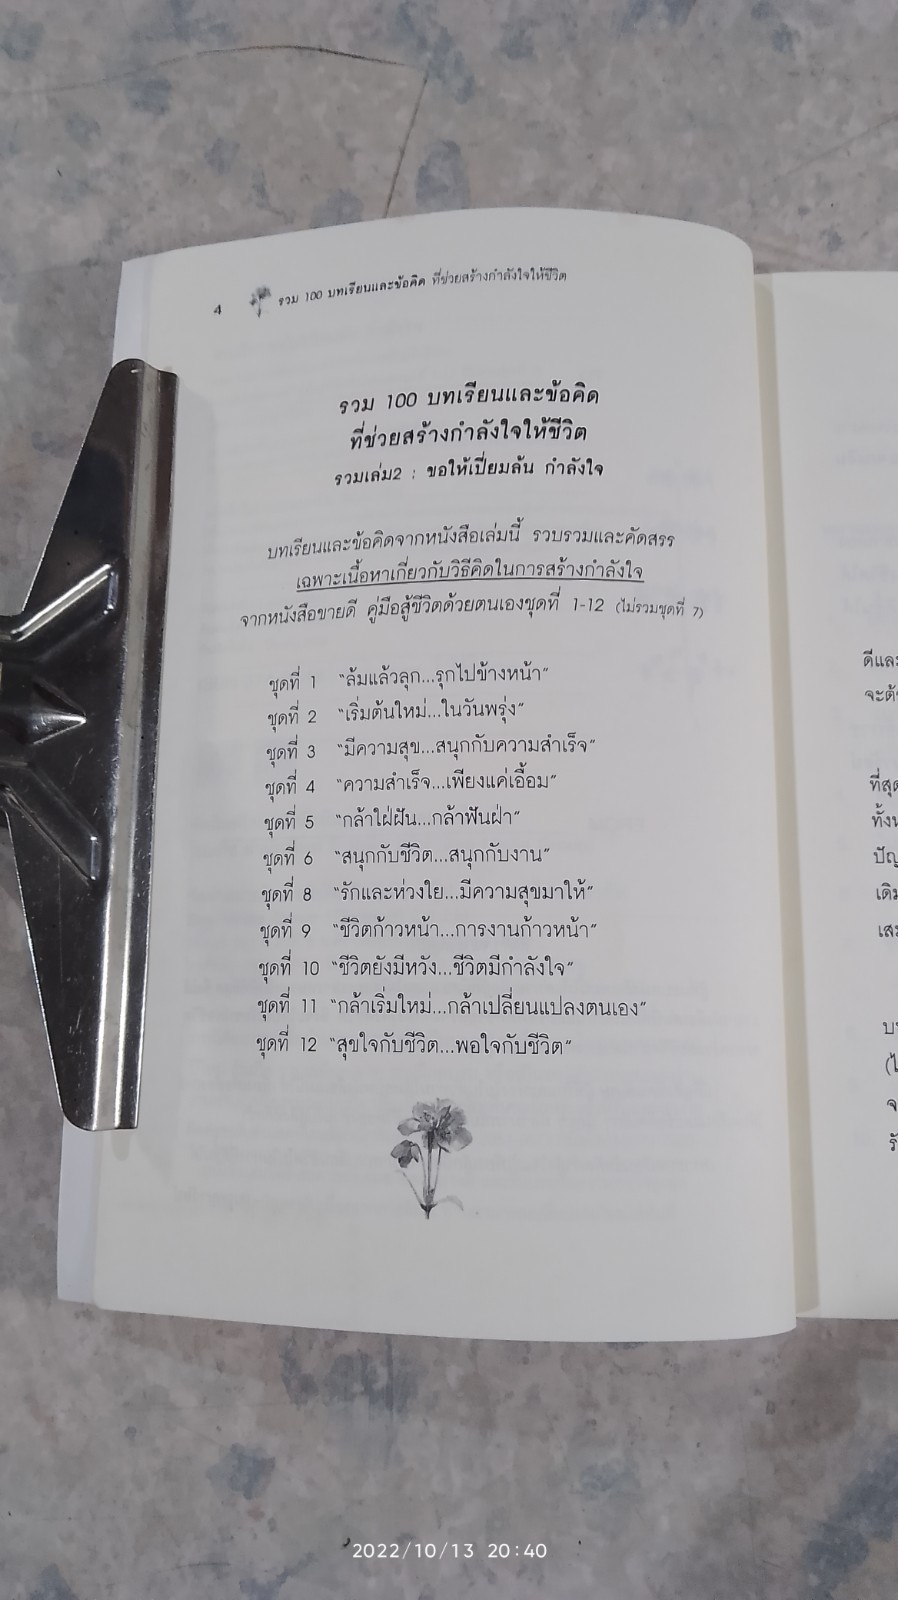 4 รวม 100 บทเรียนและข้อคิด ที่ช่วยสร้างกำลังใจให้ชีวิต
รวม 100 บทเรียนและข้อคิด
ที่ช่วยสร้างกำลังใจให้ชีวิต
รวมเล่ม2 : ขอให้เปี่ยมล้น กำลังใจ
บทเรียนและข้อคิดจากหนังสือเล่มนี้ รวบรวมและคัดสรร
เฉพาะเนื้อหาเกี่ยวกับวิธีคิดในการสร้างกำลังใจ
จากหนังสือขายดี คู่มือสู้ชีวิตด้วยตนเองชุดที่ 1-12 (ไม่รวมชุดที่ 7)
ชุดที่ 1 "ล้มแล้วลุก...รุกไปข้างหน้า"
ชุดที่ 2 "เริ่มต้นใหม่...ในวันพรุ่ง"
ชุดที่ 3 "มีความสุข...สนุกกับความสำเร็จ"
ชุดที่ 4 "ความสำเร็จ...เพียงแค่เอื้อม"
ชุดที่ 5 "กล้าใฝ่ฝัน...กล้าฟันฝ่า"
ชุดที่ 6 "สนุกกับชีวิต...สนุกกับงาน"
ชุดที่ 8 "รักและห่วงใย...มีความสุขมาให้"
ชุดที่ 9 "ชีวิตก้าวหน้า...การงานก้าวหน้า"
ชุดที่ 10 "ชีวิตยังมีหวัง...ชีวิตมีกำลังใจ"
ชุดที่ 11 "กล้าเริ่มใหม่...กล้าเปลี่ยนแปลงตนเอง"
ชุดที่ 12 "สุขใจกับชีวิต...พอใจกับชีวิต"
ดีและ
ที่สุด
2022/10/13 20:40